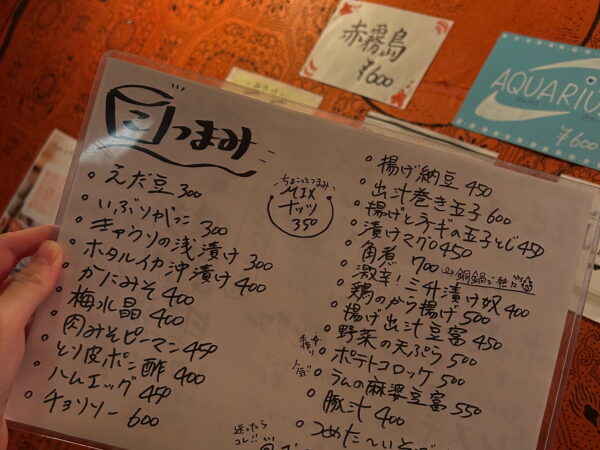 赤霧島
¥600
AQUARIU
¥600
おつまみ
えだ豆 300
いぶりがっこ 300
キャウリの浅漬け 300
ホタルイカ沖漬け 400
かにみそ 400
梅水晶 400
肉みそピーマン 450
とり皮ポン酢 400
ハムエッグ 450
チョリソー 600
ちょこっとつまみ
MIX
ナッツ
350
揚げ納豆 450
出汁巻き玉子 600
揚げとネギの玉子とじ 450
漬けマグロ 450
角煮 700
激辛!三升漬け奴 400
鶏のから揚げ 500
揚げ出汁豆富 450
野菜の天ぷら 500
手作り
ポテトコロッケ 500
人気
ラムの麻婆豆富 550
豚汁 400
迷ったら
コレ!!